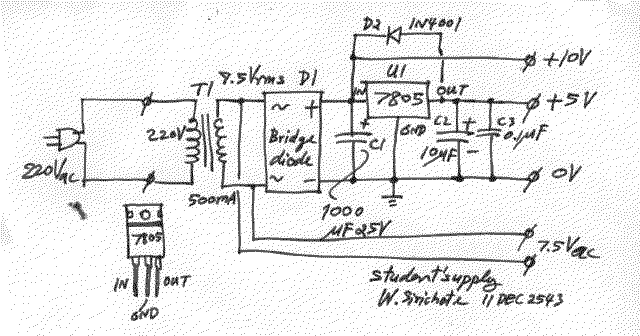 D2 1N4001
+10V
T1 7.5Vrms D1 U1
IN 7805 OUT
~ +
220V Bridge diode
GND
+ C1
C2 + C3
10µF - 0.1µF
+5V
~ -
220Vac
500mA
1000 µF25V
0V
7.5Vac
7805
IN OUT
GND
Student's supply
W. Sirichote 11 DEC 2543